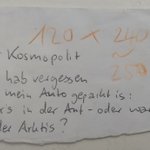 120 x 240
~ 250
Kosmopolit
hab vergessen
mein Auto geparkt is:
's in der Ant- oder war
der Arktis?